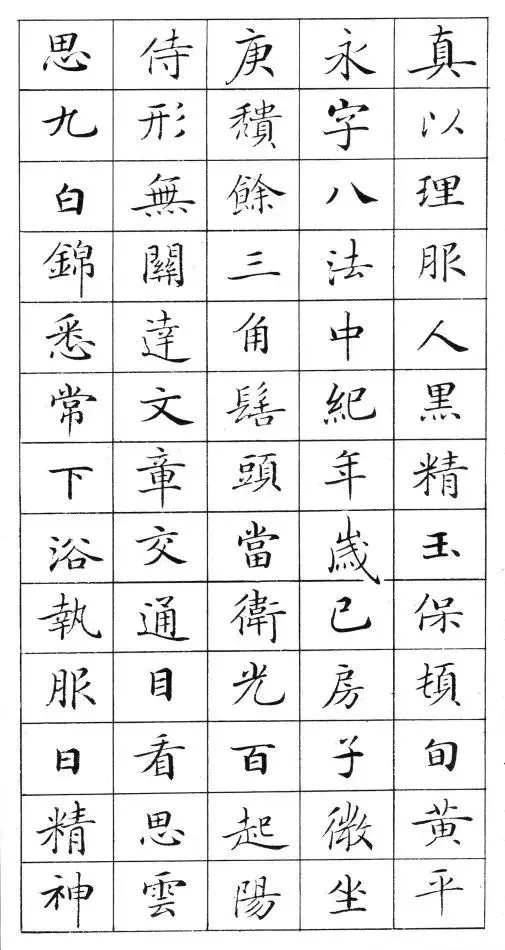 真以理服人黑精玉保頓旬黃平
永字八法中紀年歲已房子微坐
庚餘三角髻頭當衛光百起陽
侍形無關達文章交通目看思雲
思九白錦悉常下浴執服日精神